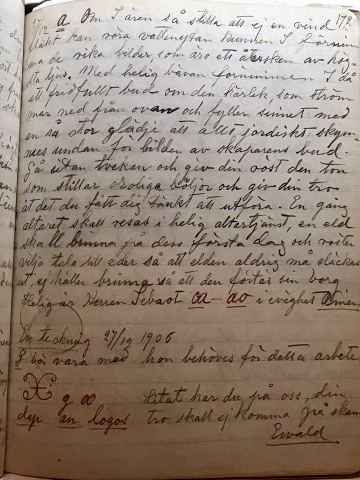 78
27/12 a Om I ären så stilla att ej en vind
kan röra vattenytan kunnen I förnim
ma de rika bilder, som äro ett återsken av hög
sta ljus. Med helig bävan förnimmen I då
ett fridfullt bud om den kärlek, som ström
mar ned från ovan och fyller sinnet med
en så stor glädje att allt jordiskt skym
mes undan för bilden av skaparens bud.
Gå utan tvekan och giv din röst den ton
som stillar oroliga böljor och giv din tro
åt det du fått dig tänkt att utföra. En gång
altaret skall resas i helig altartjänst, en eld
skall brinna på dess första dag och röster
vilja tala till eder så att elden aldrig må släckas
ut, ej håller brinna så att den förtär sin borg
Helig är Herren Sebaot a - ao i evighet Amen
En teckning 27/12 1906
I bör vara med hon behöves för detta arbete
X g oo Litat har du på oss, din
dep an logos tro skall ej komma på skam
Ewald